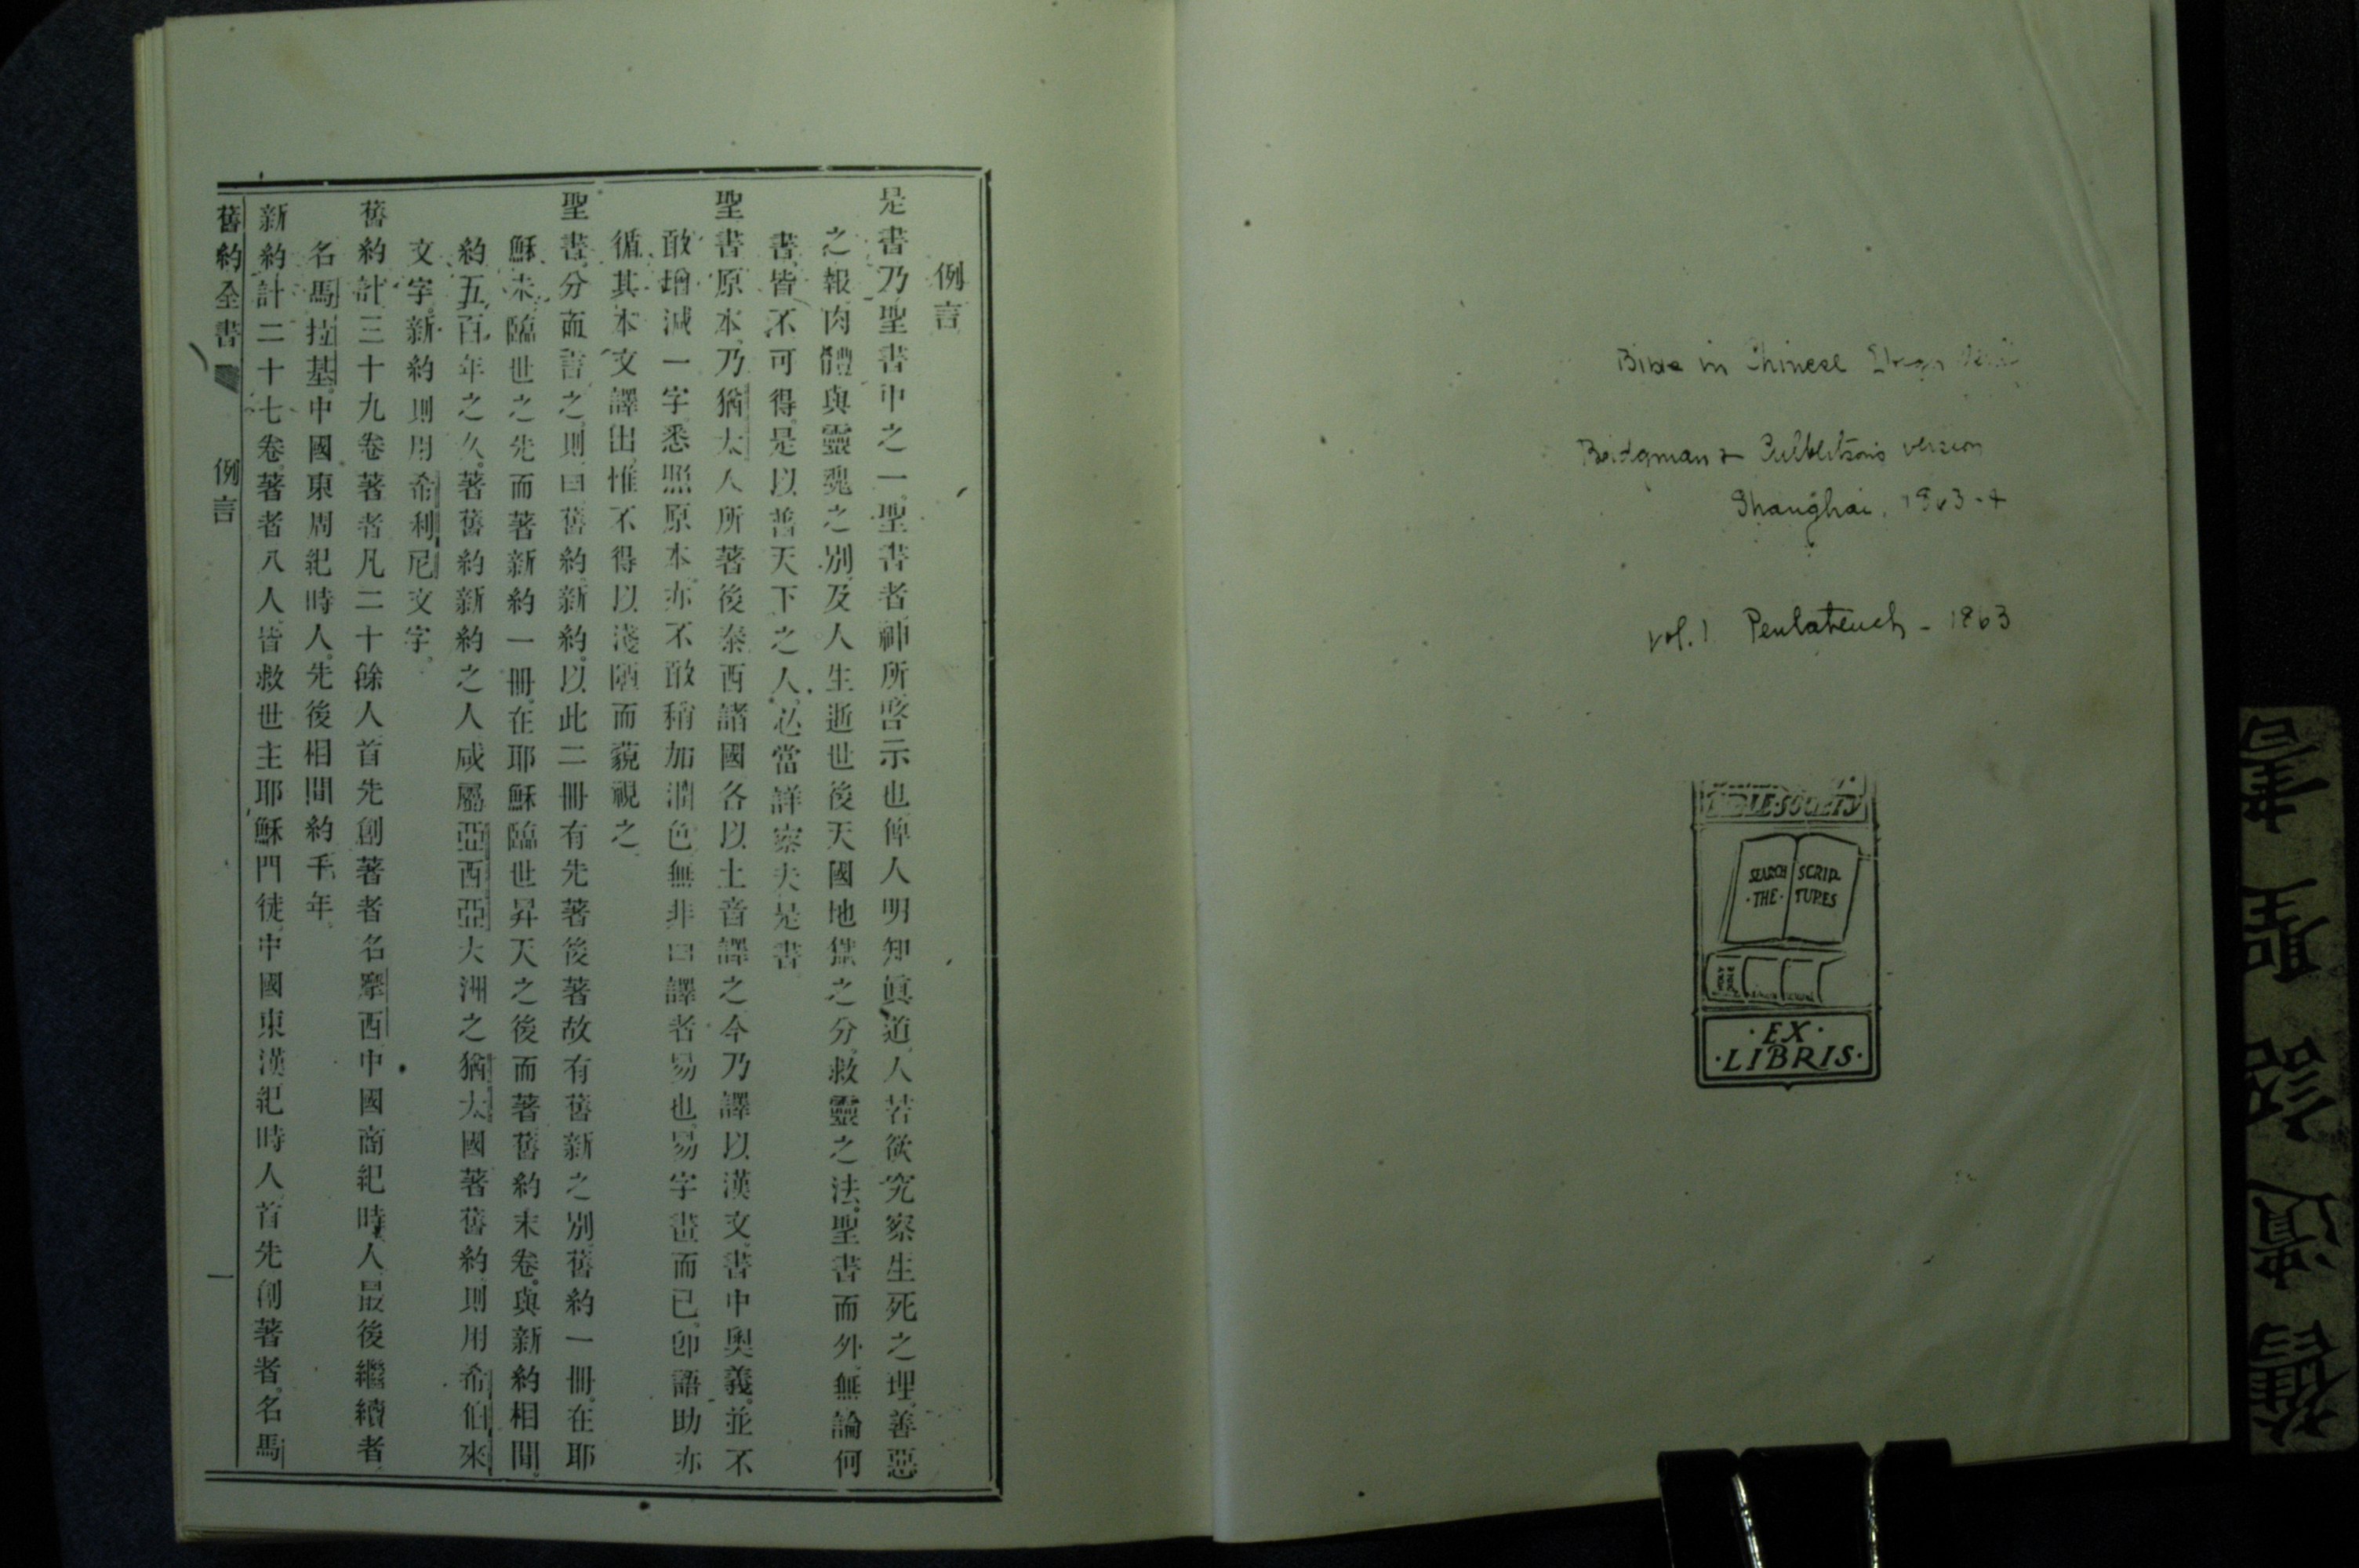 Bible in Chinese
Bridgman & Culbertson's version
Shanghai, 1863-4
Vol. 1 Pentateuch - 1863
BIBLE·SOCIETY
SEARCH SCRIP-
·THE· TURES
·EX·
·LIBRIS·
例言
是書乃聖書中之一。聖書者神所啓示也。俾人明知眞道、人若欲究察生死之理、善惡
之報、肉體與靈魂之別、及人生逝世後、天國地獄之分、救靈之法、聖書而外、無論何
書、皆不可得、是以普天下之人、必當詳察夫是書
聖書原本、乃猶太人所著、後泰西諸國、各以土音譯之、今乃譯以漢文、書中奧義、並不
敢增減一字、悉照原本、亦不敢稍加潤色、無非曰譯者易也、易字畫而已、卽語助亦
循其本文譯出、惟不得以淺陋而藐視之
聖書分而言之、則曰舊約新約、以此二冊有先著後著、故有舊新之別、舊約一冊、在耶
穌未臨世之先而著、新約一冊、在耶穌臨世昇天之後而著、舊約末卷、與新約相間、
約五百年之久。著舊約新約之人、咸屬亞西亞大洲之猶太國、著舊約、則用希伯來
文字、新約則用希利尼文字。
舊約計三十九卷、著者凡二十餘人、首先創著者名摩西、中國商紀時人、最後繼續者、
名馬拉基、中國東周紀時人、先後相間約千年
新約計二十七卷、著者八人、皆救世主耶穌門徒、中國東漢紀時人、首先創著者、名馬
舊約全書 例言 一
舊遺詔聖書